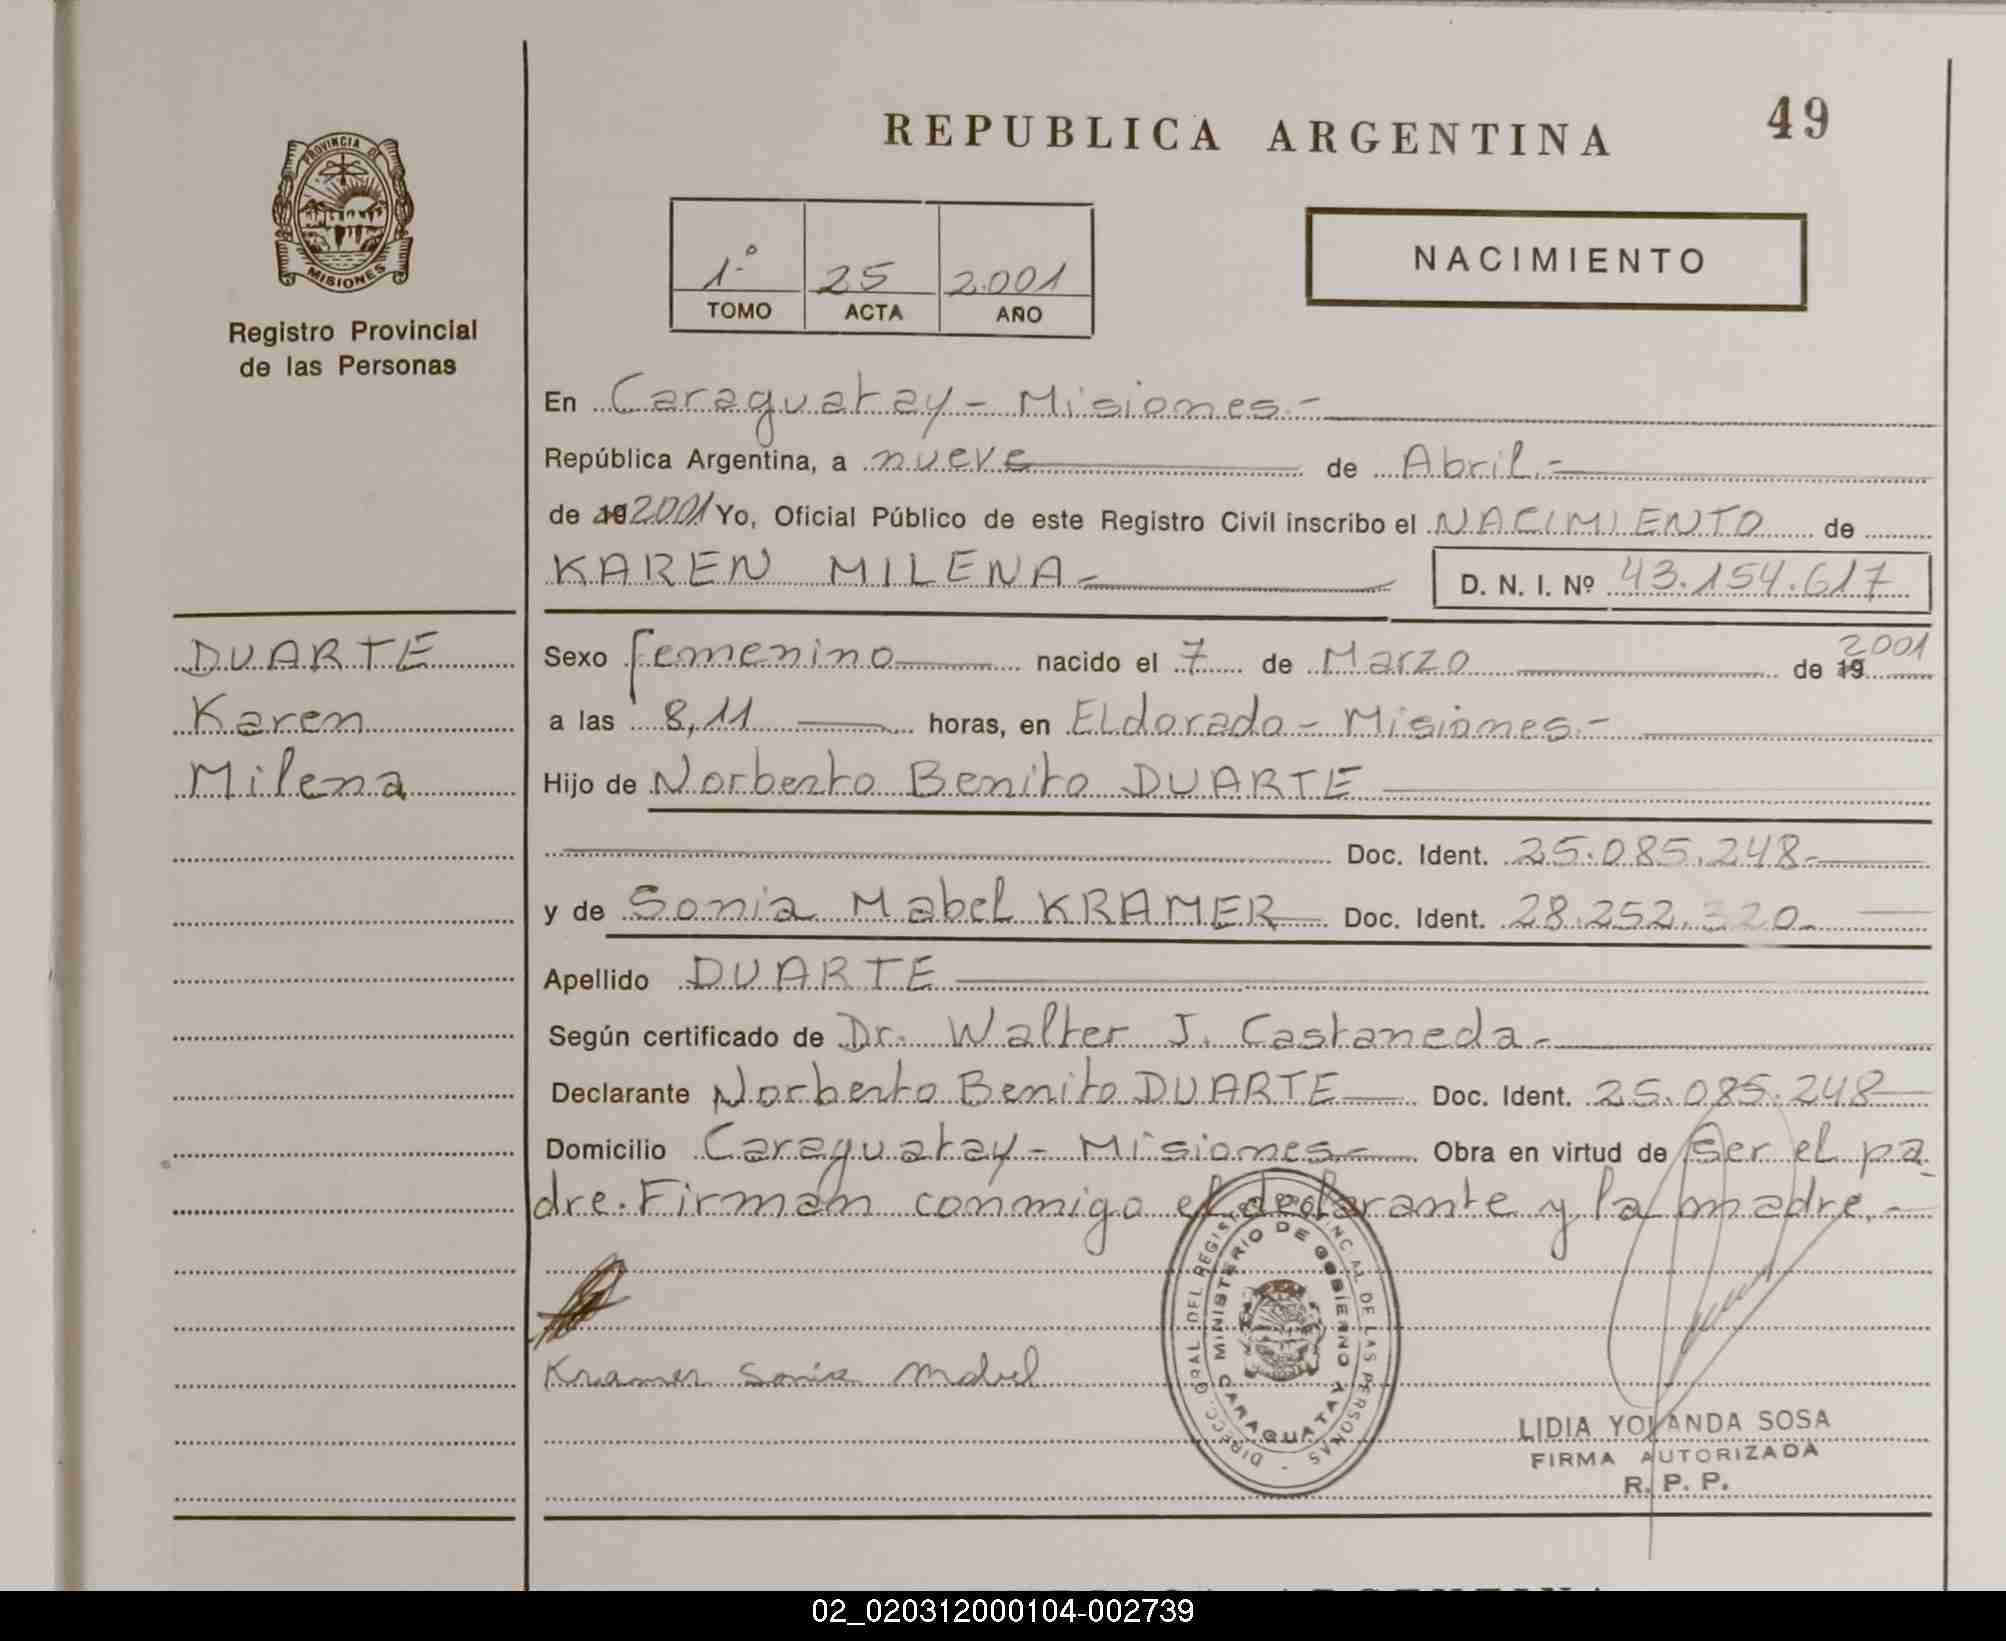 REPUBLICA ARGENTINA
49
PROVINCIA DE
MISIONES
Registro Provincial
de las Personas
1º 25 2.001
TOMO ACTA AÑO
NACIMIENTO
En Caraguatay - Misiones.-
República Argentina, a nueve de Abril.-
de 19 2001 Yo, Oficial Público de este Registro Civil inscribo el NACIMIENTO de
KAREN MILENA.- D. N. I. Nº 43.154.617
DUARTE
Karen
Milena
Sexo femenino nacido el 7 de Marzo de 19 2001
a las 8,11 horas, en ELdorado - Misiones.-
Hijo de Norberto Benito DUARTE
Doc. Ident. 25.085.248.-
y de Sonia Mabel KRAMER Doc. Ident. 28.252.320.-
Apellido DUARTE
Según certificado de Dr. Walter J. Castaneda.-
Declarante Norberto Benito DUARTE Doc. Ident. 25.085.248
Domicilio Caraguatay - Misiones.- Obra en virtud de ser el pa-
dre. Firman conmigo el declarante y la madre.-
Kramer Sonia Mabel
DIRECC. GRAL. DEL REGISTRO PROVINCIAL DE LAS PERSONAS -
MINISTERIO DE GOBIERNO
CARAGUATAY
LIDIA YOLANDA SOSA
FIRMA AUTORIZADA
R. P. P.
02_020312000104-002739